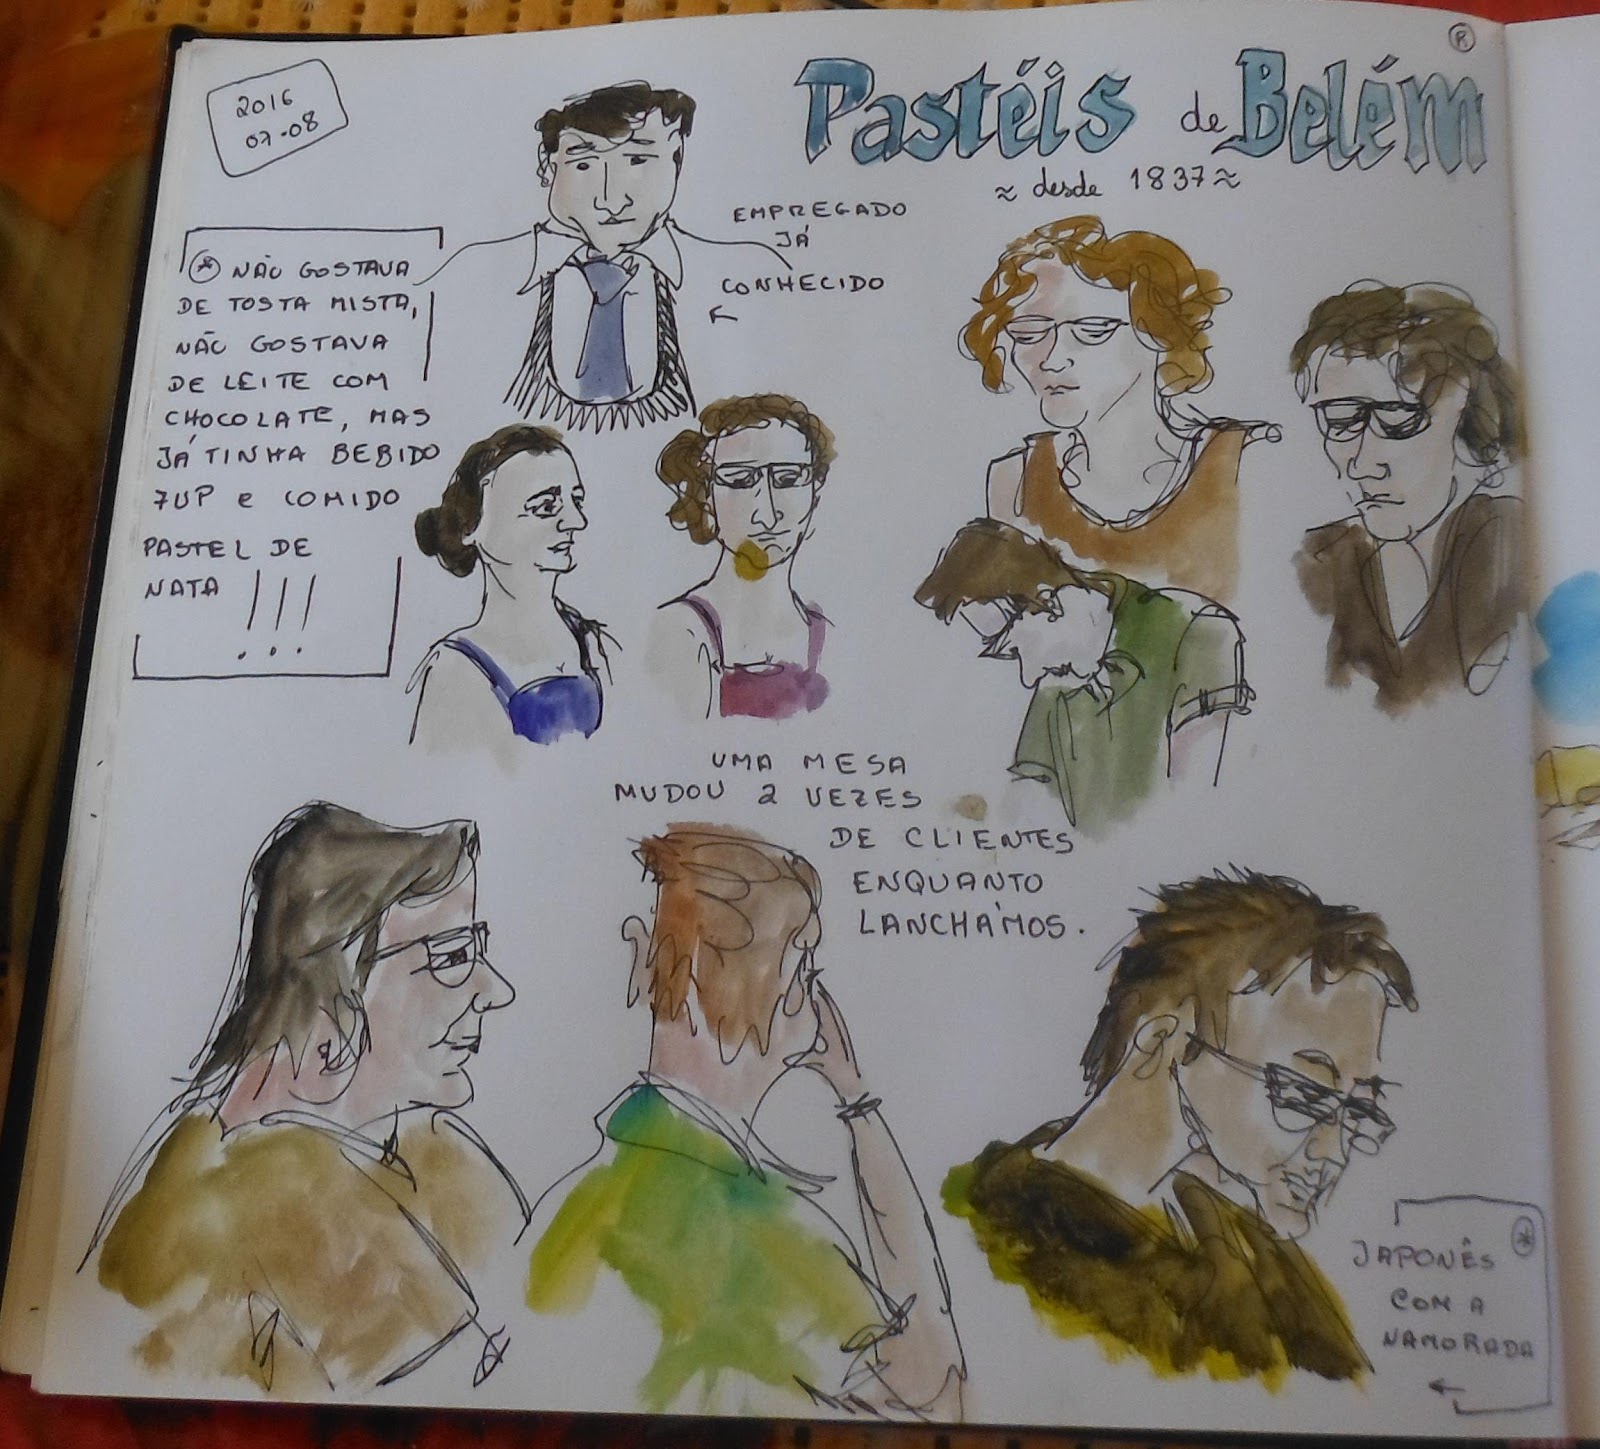 2016
07-08
Pastéis de Belém ®
≈ desde 1837 ≈
EMPREGADO
JÁ
CONHECIDO
* NÃO GOSTAVA
DE TOSTA MISTA,
NÃO GOSTAVA
DE LEITE COM
CHOCOLATE, MAS
JÁ TINHA BEBIDO
7UP e COMIDO
PASTEL DE
NATA !!!
UMA MESA
MUDOU 2 VEZES
DE CLIENTES
ENQUANTO
LANCHÁMOS.
*
JAPONÊS
COM A
NAMORADA